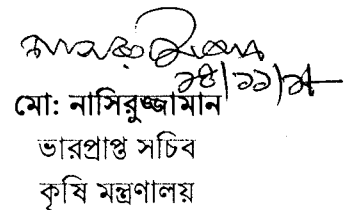 মো: নাসিরুজ্জামান
ভারপ্রাপ্ত সচিব
কৃষি মন্ত্রণালয়